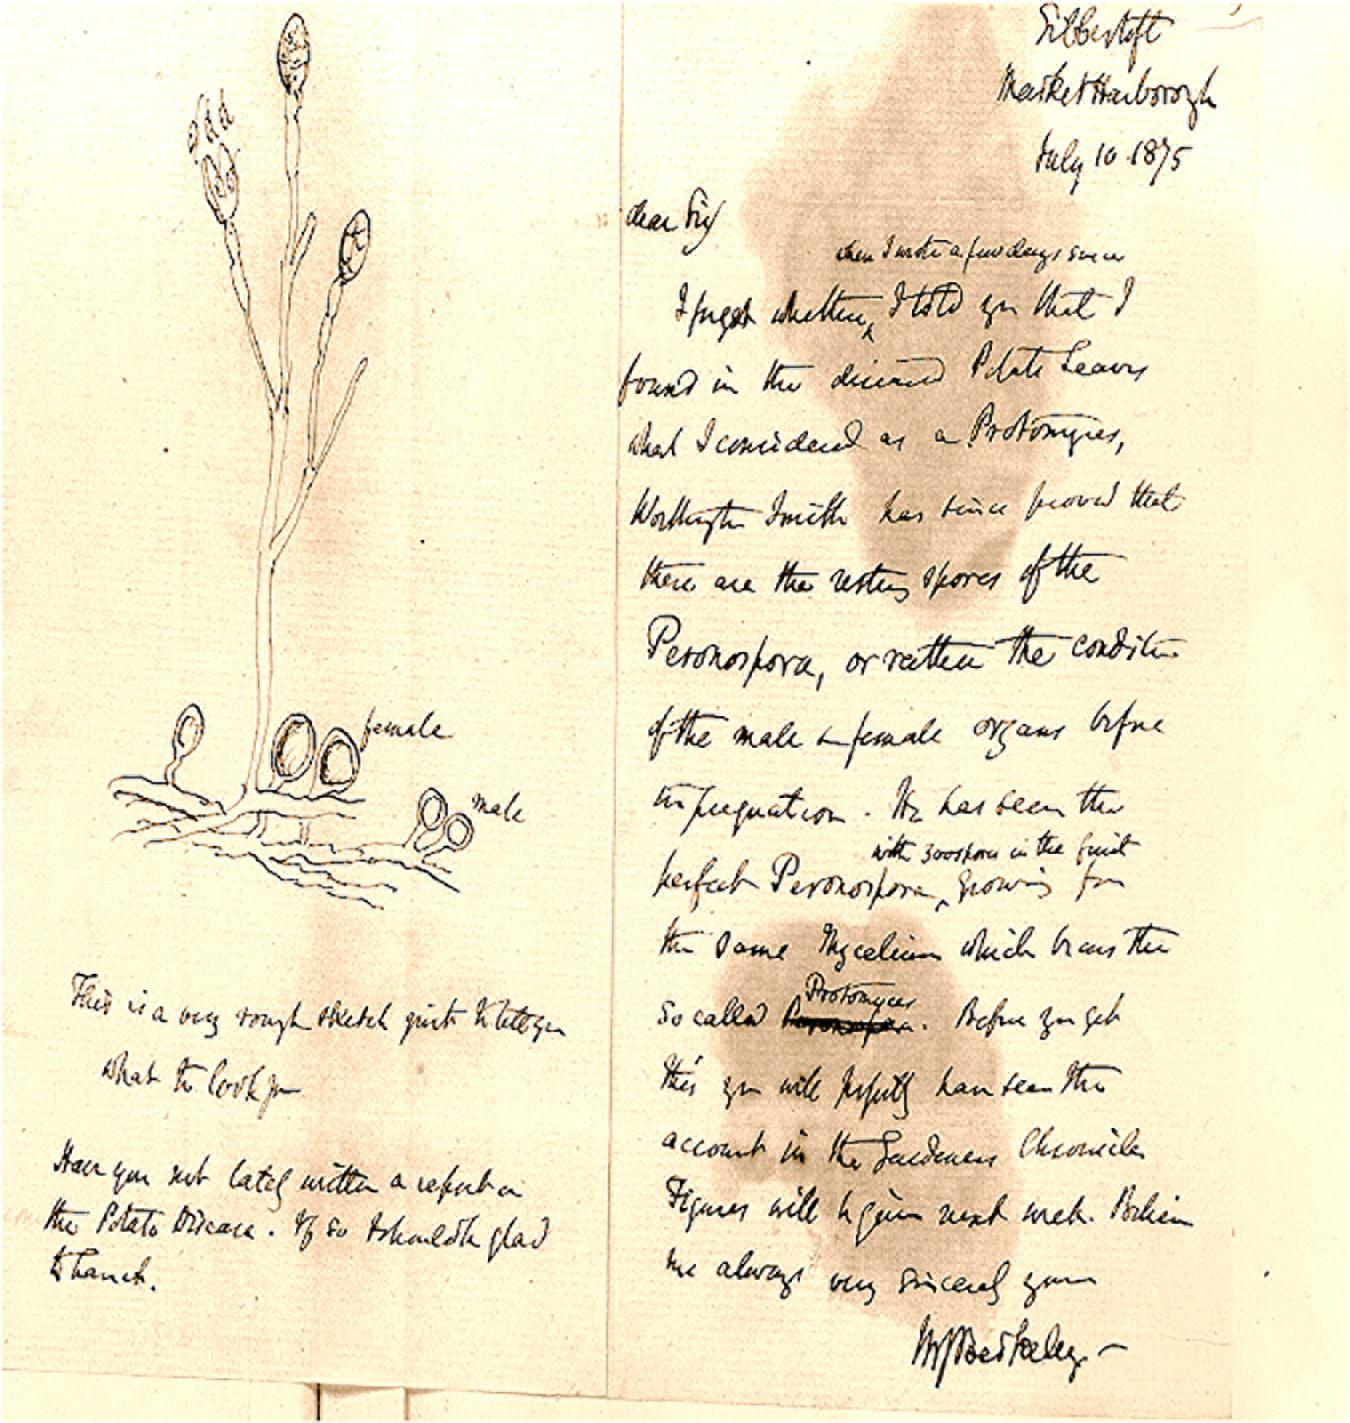 Sibbertoft
Market Harborough
July 10 1875
dear Sir
when I wrote a few days since
I forget whether ^ I told you that I
found in the diseased Potato Leaves
what I considered as a Protomyces,
Worthington Smith has since proved that
these are the resting spores of the
Peronospora, or rather the condition
of the male & female organs before
impregnation. He has seen the
with zoospores in the fruit
perfect Peronospora ^ growing from
the same Mycelium which bears the
Protomyces
so called Peronospora. Before you get
this you will have seen the
account in the Gardeners Chronicle
Figures will be given next week. Believe
me always very sincerely yours
MJ Berkeley
female
male
This is a very rough sketch just to tell you
what to look for
Have you not lately written a report on
the Potato Disease. If so I should be glad
to have it.